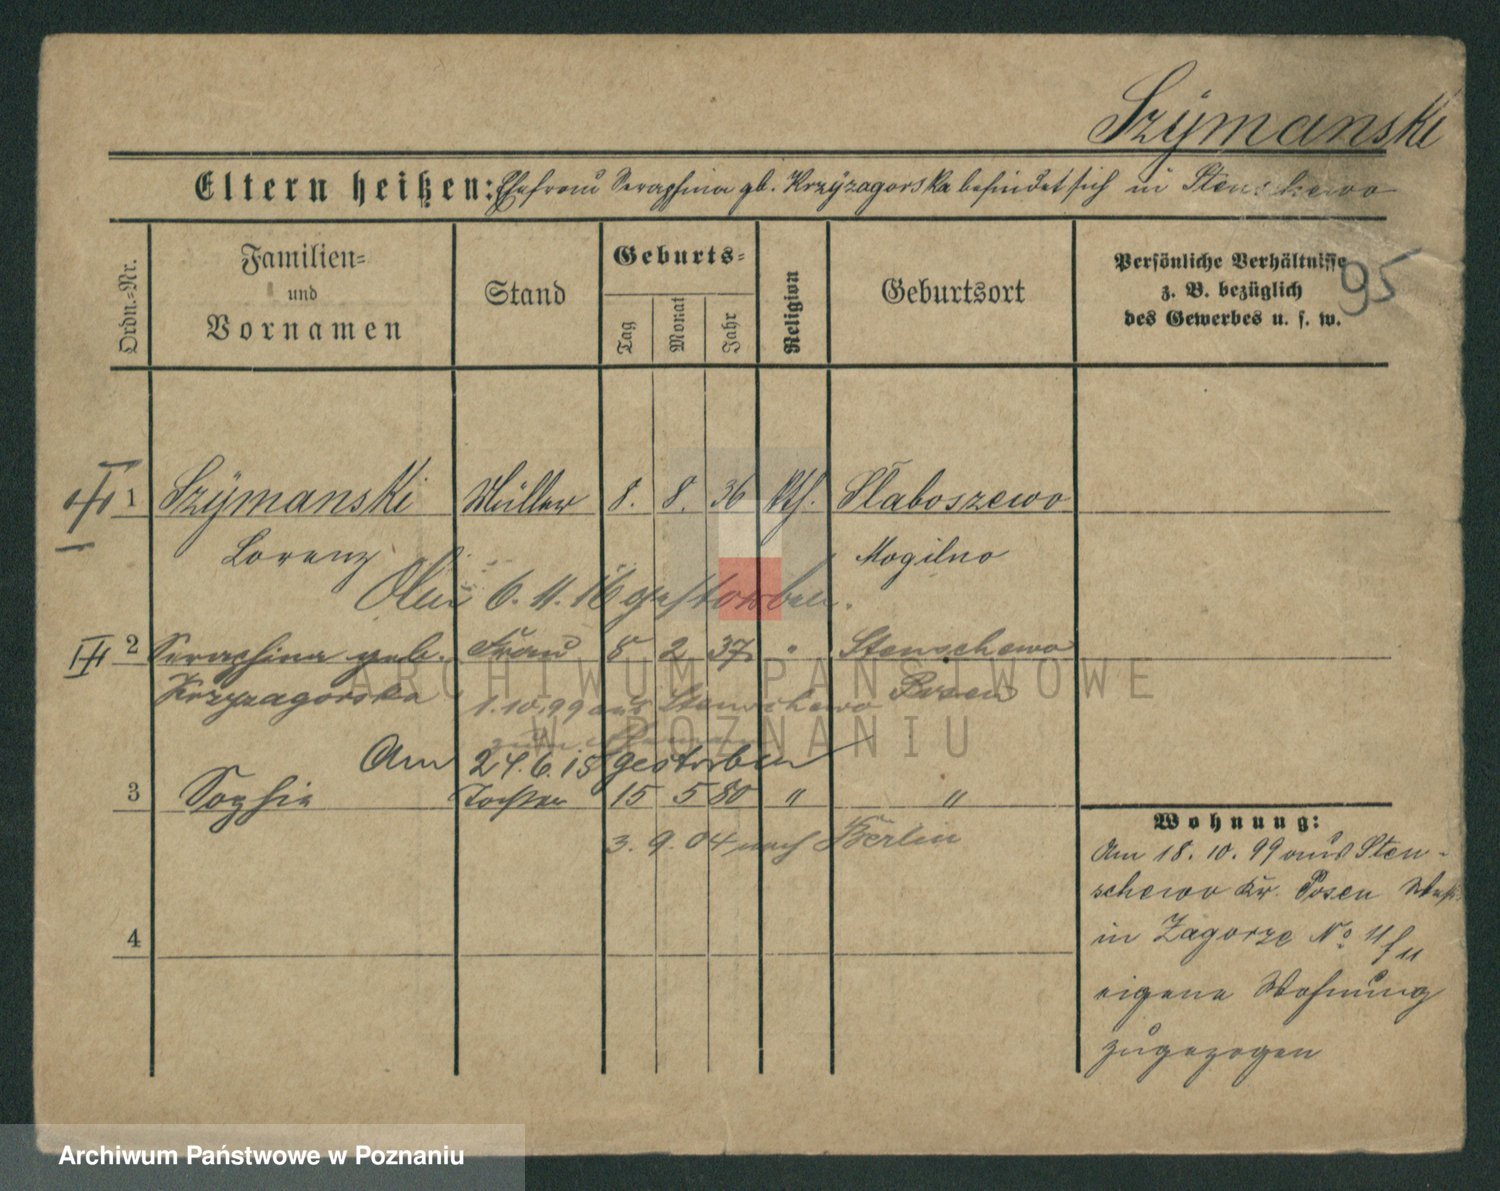 Szymanski
Eltern heißen: Ehefrau Seraphina gb. Krzyzagorska befindet sich in Stenschewo
Ordn.-Nr.
Familien-
und
Vornamen
Stand
Geburts-
Tag
Monat
Jahr
Religion
Geburtsort
Persönliche Verhältnisse
z. B. bezüglich
des Gewerbes u. s. w.
95
1 Szymanski Müller 8. 8. 36 kth. Slaboszewo
Lorenz Mogilno
6. 11. 16 gestorben.
2 Seraphina geb. Frau 8 2 37 " Stenschewo
Krzyzagorska Posen
1.10.99 aus Stenschewo
Am 24.6.15 gestorben
3 Sophie Tochter 15 5 80 " "
3. 9. 04 nach Berlin
4
Wohnung:
Am 18. 10. 99 aus Sten-
schewo Kr. Posen
in Zagorze No 11
eigene Wohnung
zugezogen
ARCHIWUM PAŃSTWOWE
W POZNANIU
Archiwum Państwowe w Poznaniu